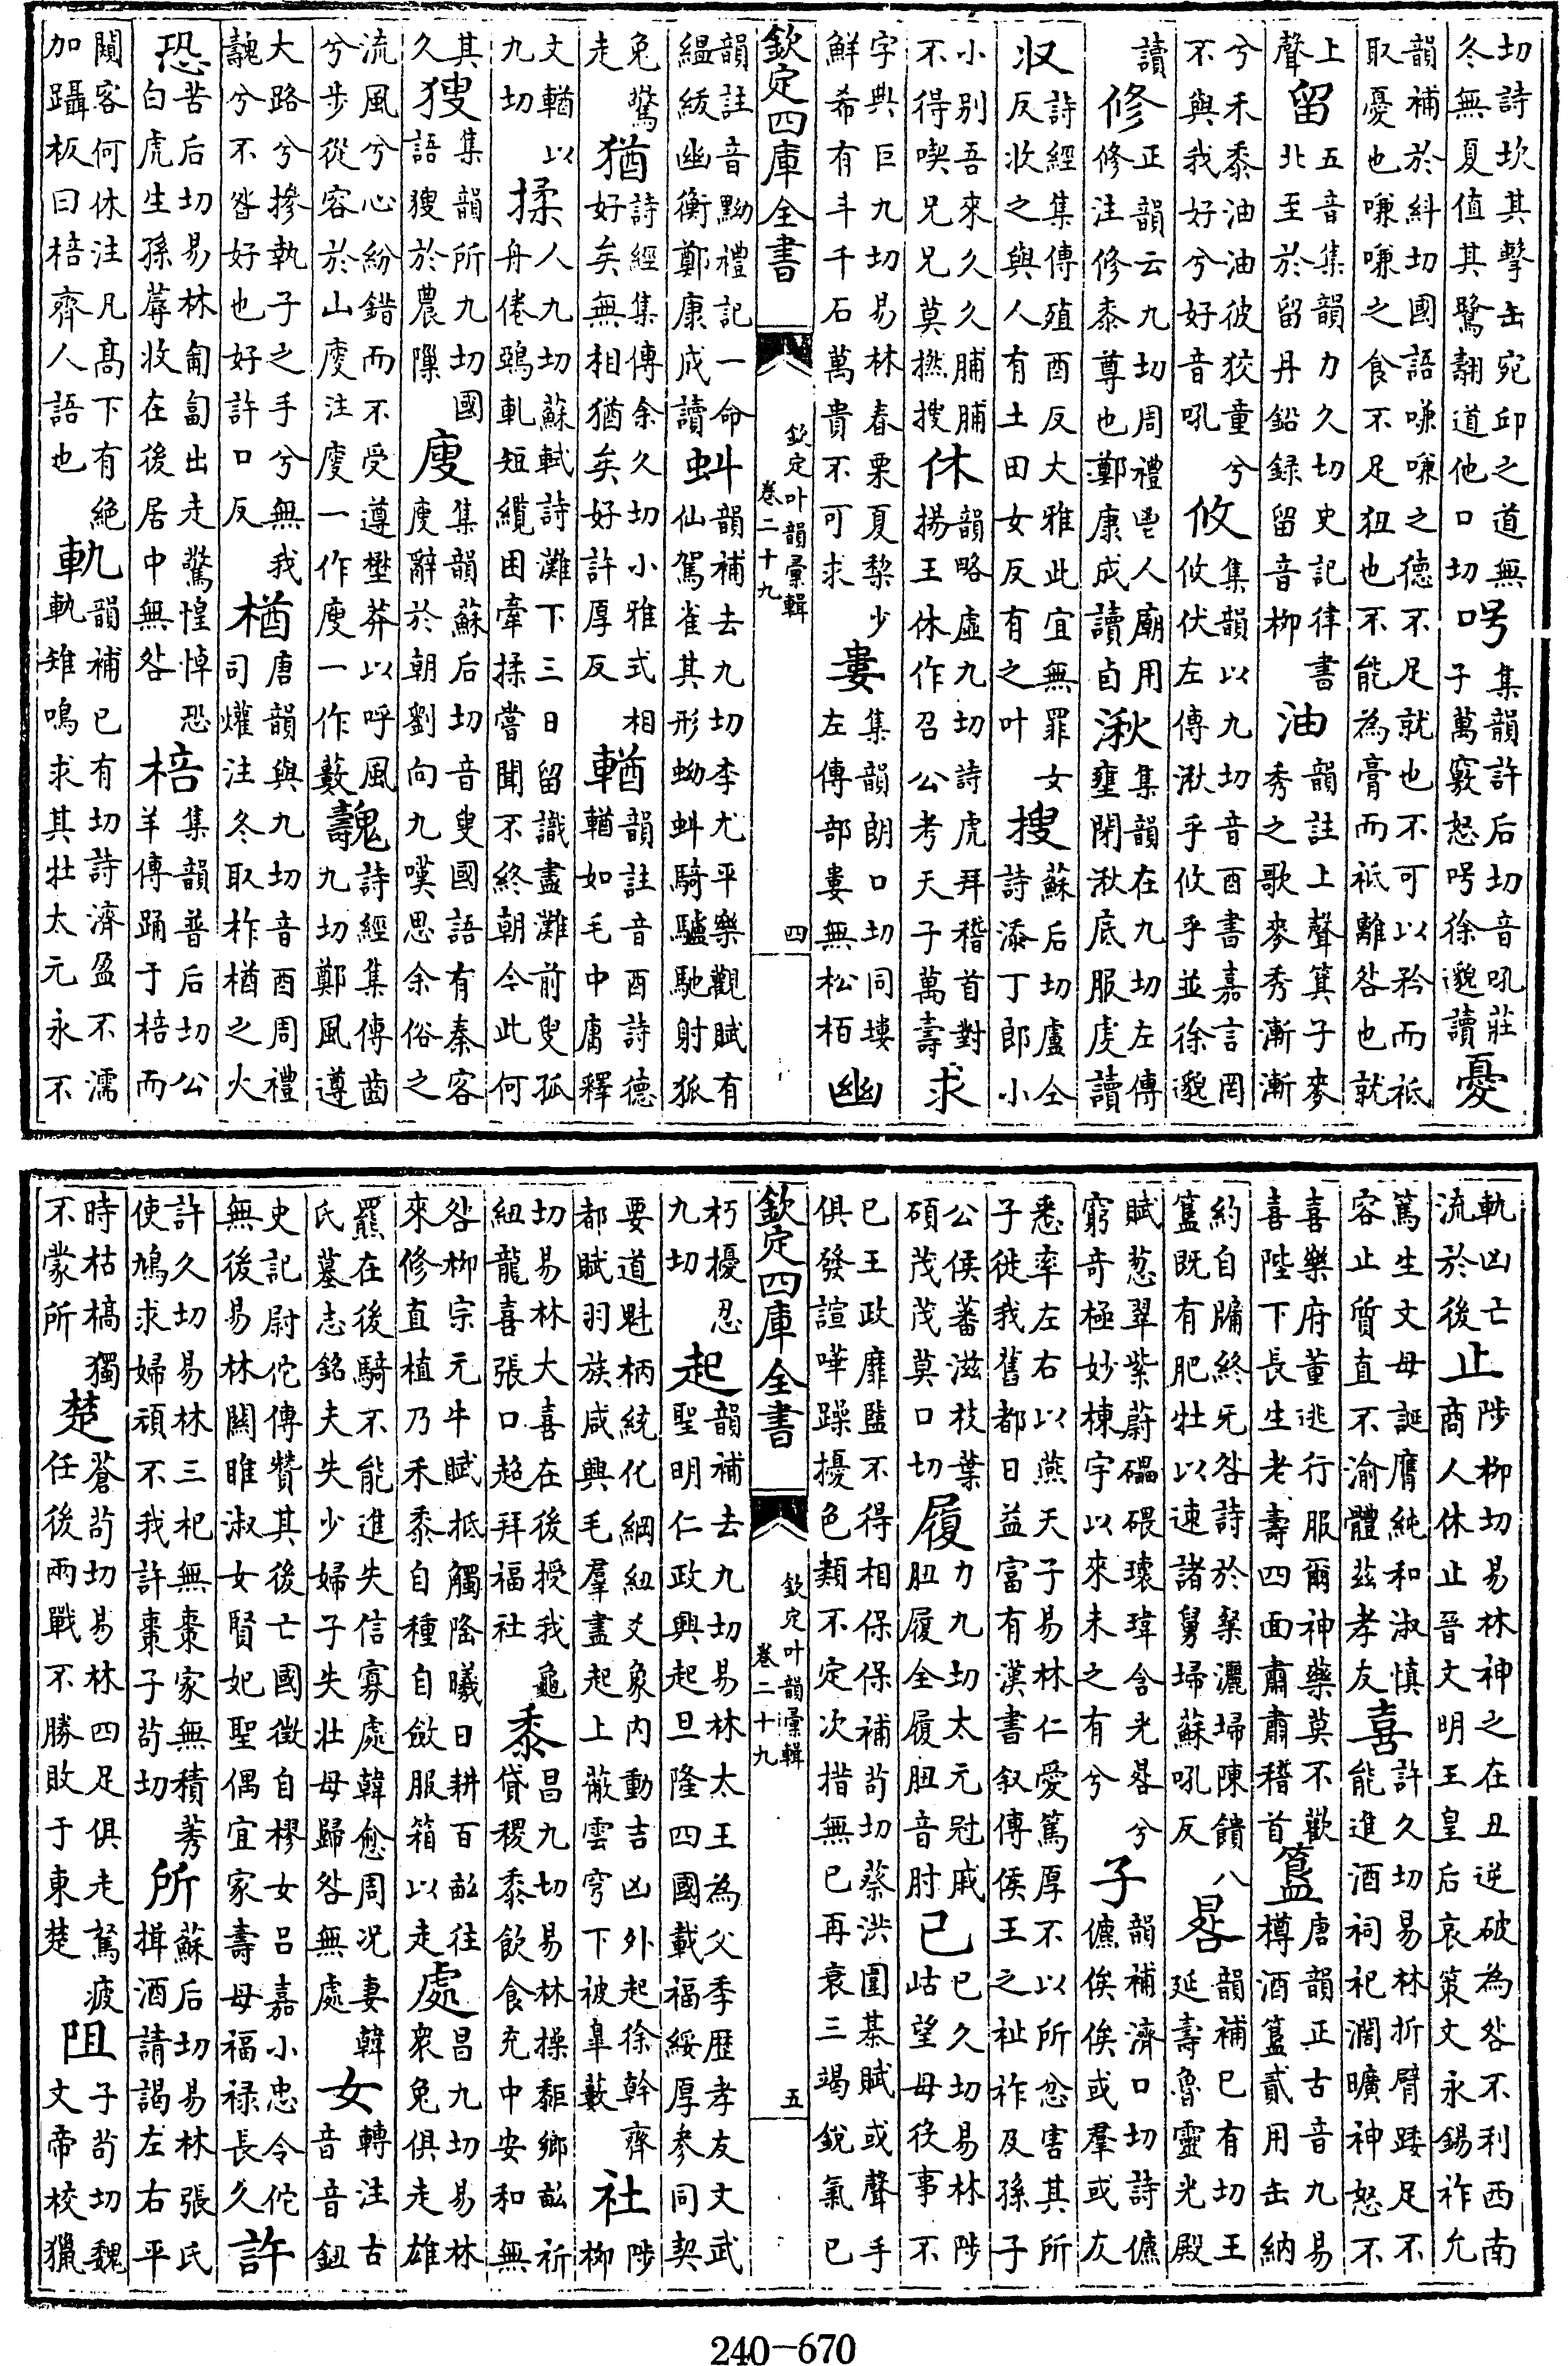 切詩坎其擊缶宛邱之道無冬無夏值其鷺翿道他口切呺集韻許后切音吼莊子萬竅怒呺徐邈讀憂
韻補於糾切國語嗛嗛之德不足就也不可以矜而祇取憂也嗛嗛之食不足狃也不能為膏而祗離咎也就
上聲留五音集韻力久切史記律書北至於留丹鉛録留音柳油韻註上聲箕子麥秀之歌麥秀漸漸
兮禾黍油油彼狡童兮不與我好兮好音吼攸集韻以九切音酉書嘉言罔攸伏左傳湫乎攸乎並徐邈
讀修正韻云九切周禮鬯人廟用修注修黍尊也鄭康成讀卣湫集韻在九切左傳壅閉湫底服䖍讀
收詩經集傳殖酉反大雅此宜無罪女反收之與人有土田女反有之叶搜蘇后切盧仝詩添丁郎小
小別吾來久久脯脯不得喫兄兄莫撚搜休韻略虛九切詩虎拜稽首對揚王休作召公考天子萬壽求
字典巨九切易林春栗夏棃少鮮希有斗千石萬貴不可求婁集韻朗口切同塿左傳部婁無松栢幽
欽定四庫全書 欽定叶韻彚輯 卷二十九 四
韻註音黝禮記一命緼紱幽衡鄭康成讀蚪韻補去九切李尤平樂觀賦有仙駕雀其形蚴蚪騎驢馳射狐
兔驚走猶詩經集傳余久切小雅式相好矣無相猶矣好許厚反輶韻註音酉詩德輶如毛中庸釋
文輶以九切揉人九切蘇軾詩灘下三日留識盡灘前叟孤舟倦鵶軋短纜困牽揉嘗聞不終朝今此何
其久獀集韻所九切國語獀於農隟廋集韻蘇后切音叟國語有秦客廋辭於朝劉向九嘆思余俗之
流風兮心紛錯而不受遵壄莽以呼風兮步從容於山廋注廋一作廀一作藪魗詩經集傳齒九切鄭風遵
大路兮摻執子之手兮無我魗兮不寁好也好許口反楢唐韻與九切音酉周禮司爟注冬取柞楢之火
恐苦后切易林匍匐出走驚惶悼恐白虎生孫蓐收在後居中無咎棓集韻普后切公羊傳踊于棓而
闚客何休注凡高下有絕加躡板曰棓齊人語也軌韻補已有切詩濟盈不濡軌雉鳴求其牡太元永不
軌凶亡流於後止陟柳切易林神之在丑逆破為咎不利西南商人休止晉文明王皇后哀策文永錫祚允
篤生文母誕膺純和淑慎容止質直不渝體茲孝友喜許久切易林折臂踒足不能進酒祠祀濶曠神怒不
喜樂府董逃行服爾神藥莫不歡喜陛下長生老壽四面肅肅稽首簋唐韻正古音九易樽酒簋貳用缶納
約自牖終无咎詩於粲灑埽陳饋八簋既有肥牡以速諸舅埽蘇吼反晷韻補已有切王延壽魯靈光殿
賦葱翠紫蔚礧碨瓌瑋含光晷兮窮奇極妙棟宇以來未之有兮子韻補濟口切詩儦儦俟俟或羣或友
悉率左右以燕天子易林仁愛篤厚不以所忿害其所子徙我舊都日益富有漢書叙傳侯王之祉祚及孫子
公侯蕃滋枝葉碩茂茂莫口切履力九切太元冠戚肕履全履肕音肘已已久切易林陟岵望母役事不
已王政靡盬不得相保保補苟切蔡洪圍棊賦或聲手俱發諠嘩躁擾色類不定次措無已再衰三竭銳氣已
欽定四庫全書 欽定叶韻彚輯 卷二十九 五
朽擾忍九切起韻補去九切易林太王為父季歷孝友文武聖明仁政興起旦隆四國載福綏厚參同契
要道魁柄統化綱紐爻象内動吉凶外起徐幹齊都賦羽族咸興毛羣盡起上蔽雲穹下被皐藪社陟柳
切易林大喜在後授我龜紐龍喜張口超拜福社黍昌九切易林操黍鄉畝祈貸稷黍飲食充中安和無
咎柳宗元牛賦抵觸隆曦日耕百畝往來修直植乃禾黍自種自斂服箱以走處昌九切易林衆兔俱走雄
羆在後騎不能進失信寡處韓愈周况妻韓氏墓志銘夫失少婦子失壯母歸咎無處女轉注古音音鈕
史記尉佗傳贊其後亡國徵自樛女呂嘉小忠令佗無後易林關雎淑女賢妃聖偶宜家壽母福禄長久許
許久切易林三杞無棗家無積莠使鳩求婦頑不我許棗子苟切所蘇后切易林張氏揖酒請謁左右平
時枯槁獨不蒙所楚蒼苟切易林四足俱走駑疲任後兩戰不勝敗于東楚阻子苟切魏文帝校獵
240-670